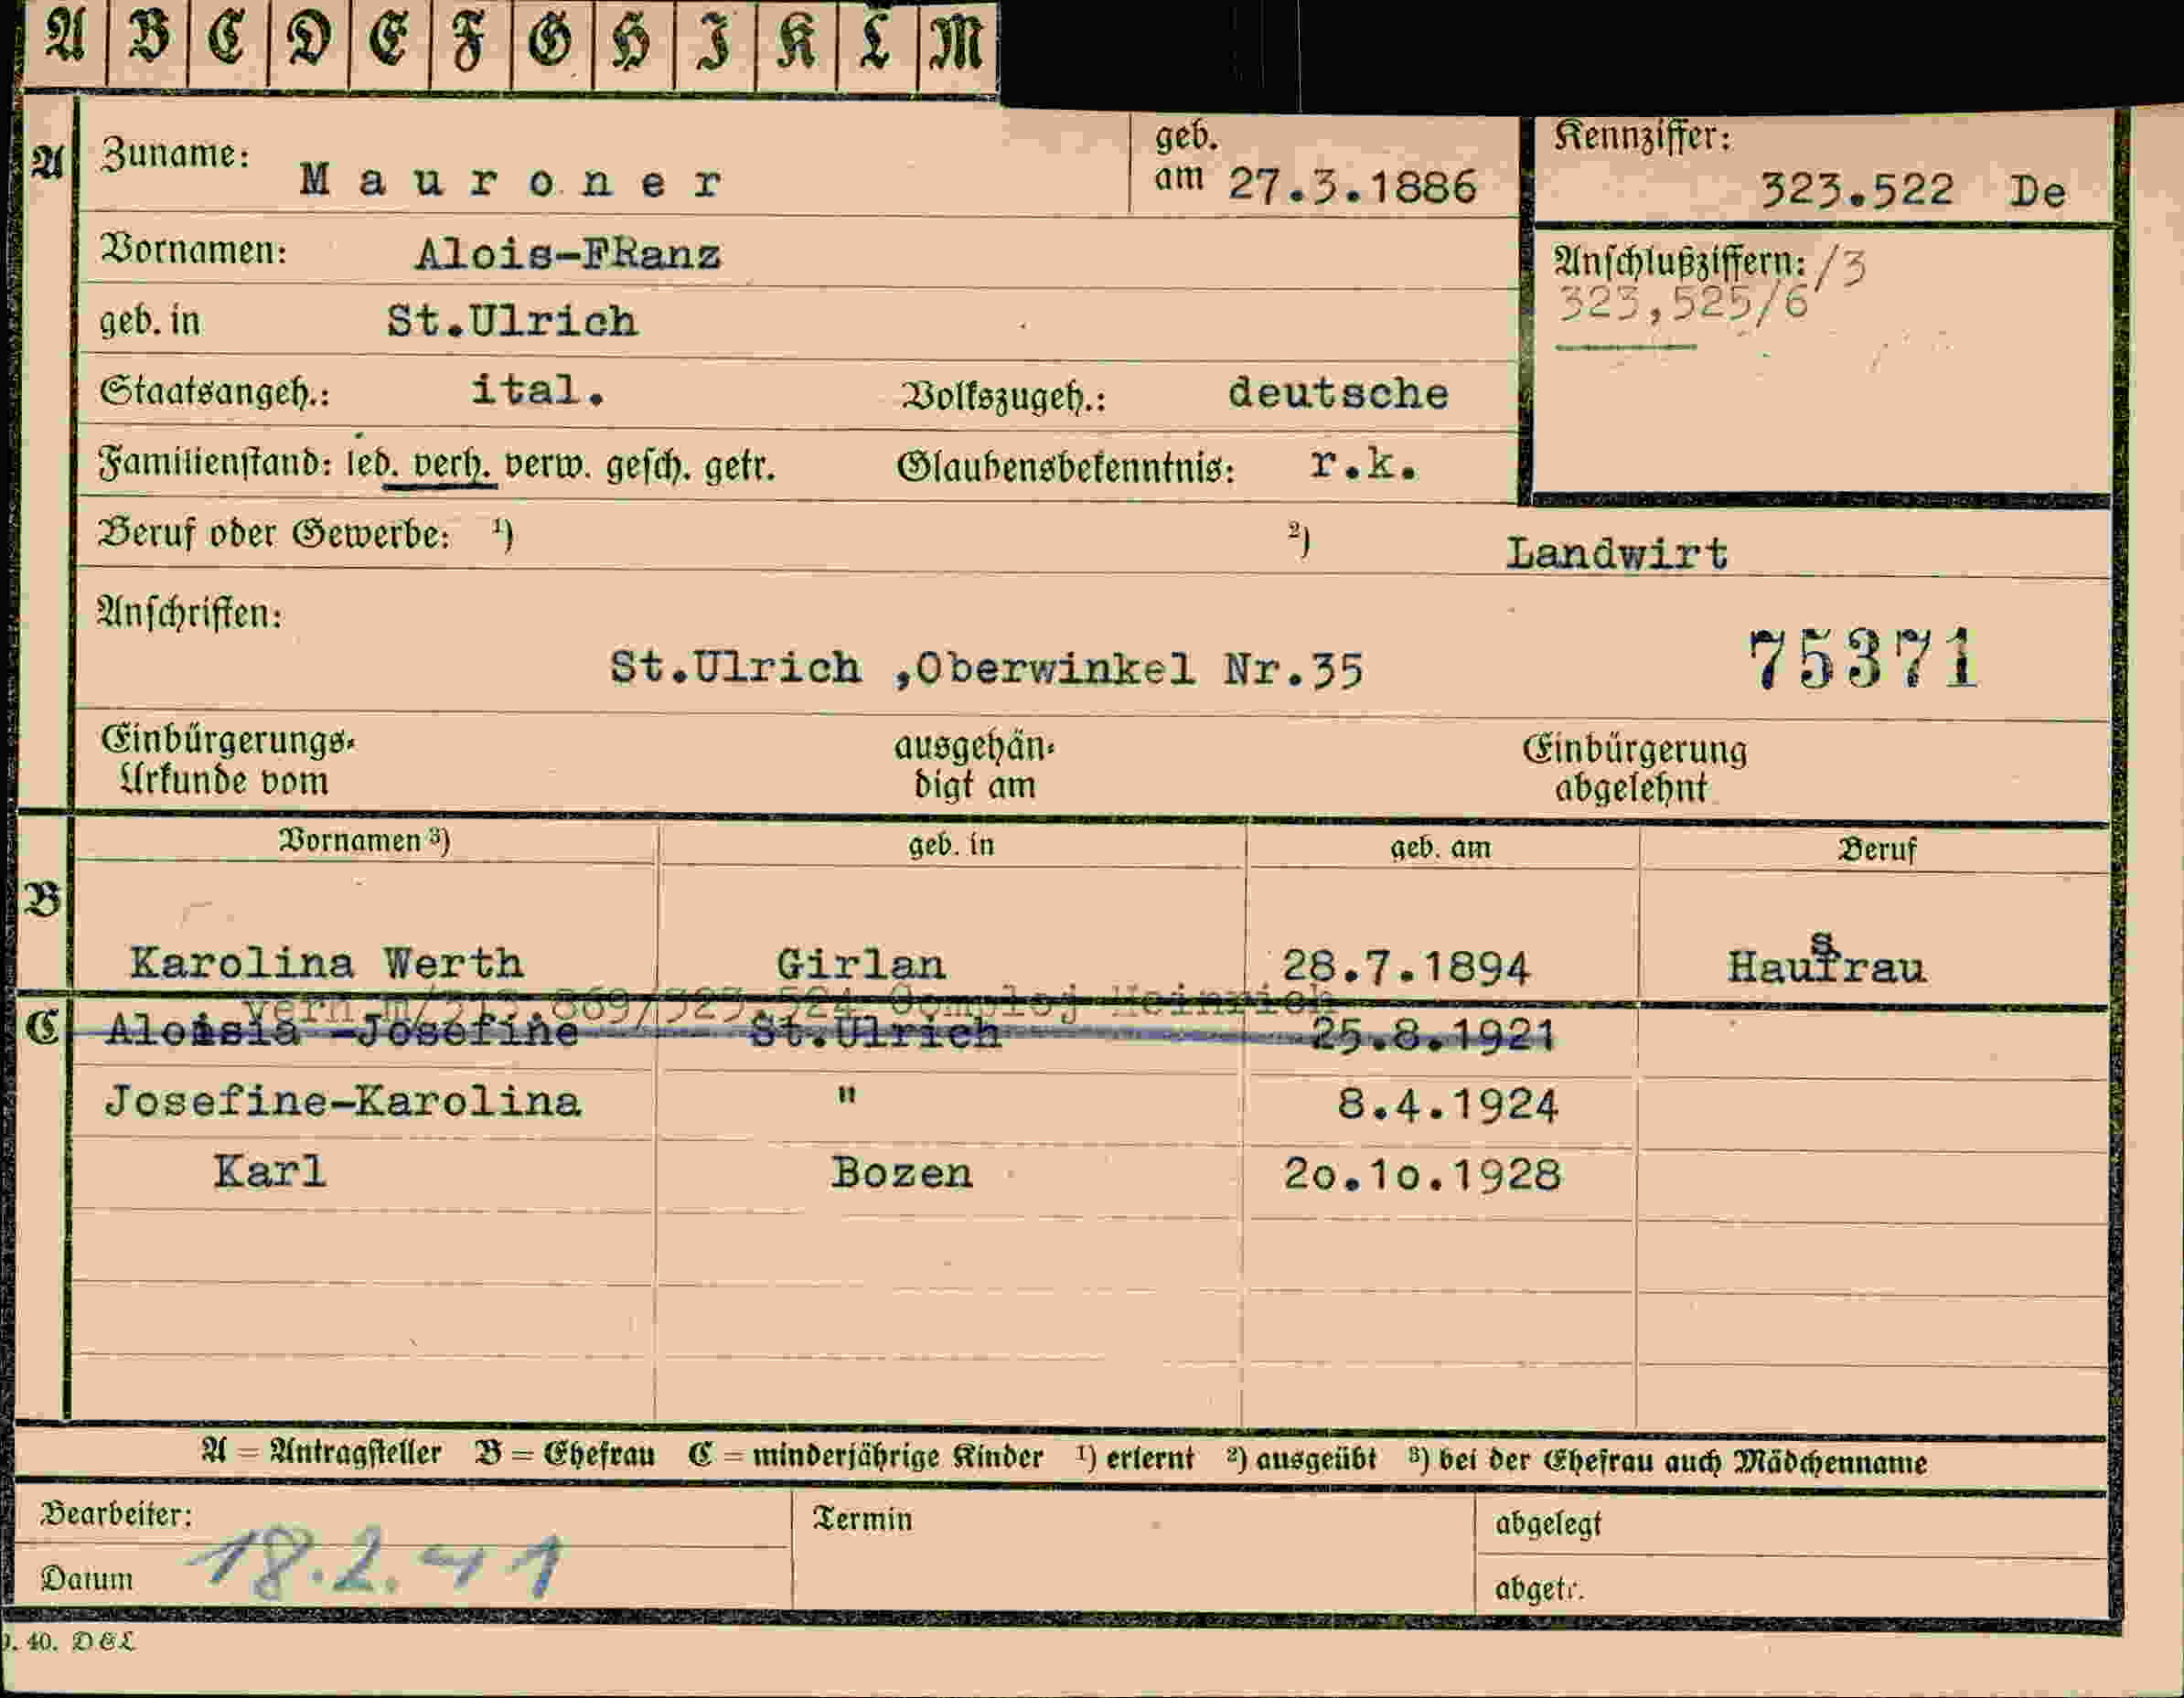 A B C D E F G H I K L M
A Zuname: Mauroner geb. am 27.3.1886 Kennziffer: 323.522 De
Vornamen: Alois-FRanz Anschlußziffern: /3
323,525/6
geb. in St.Ulrich
Staatsangeh.: ital. Volkszugeh.: deutsche
Familienstand: led. verh. verw. gesch. getr. Glaubensbekenntnis: r.k.
Beruf oder Gewerbe: ¹) ²) Landwirt
Anschriften:
St.Ulrich ,Oberwinkel Nr.35 75371
Einbürgerungs- ausgehän- Einbürgerung
Urkunde vom digt am abgelehnt
Vornamen ³) geb. in geb. am Beruf
B
Karolina Werth Girlan 28.7.1894 Hausfrau
869/323 524 Comploj Heinrich
C Aloisia -Josefine St.Ulrich 25.8.1921
Josefine-Karolina " 8.4.1924
Karl Bozen 2o.1o.1928
A = Antragsteller B = Ehefrau C = minderjährige Kinder ¹) erlernt ²) ausgeübt ³) bei der Ehefrau auch Mädchenname
Bearbeiter: Termin abgelegt
Datum 18.2.41 abgetr.
40. D&L